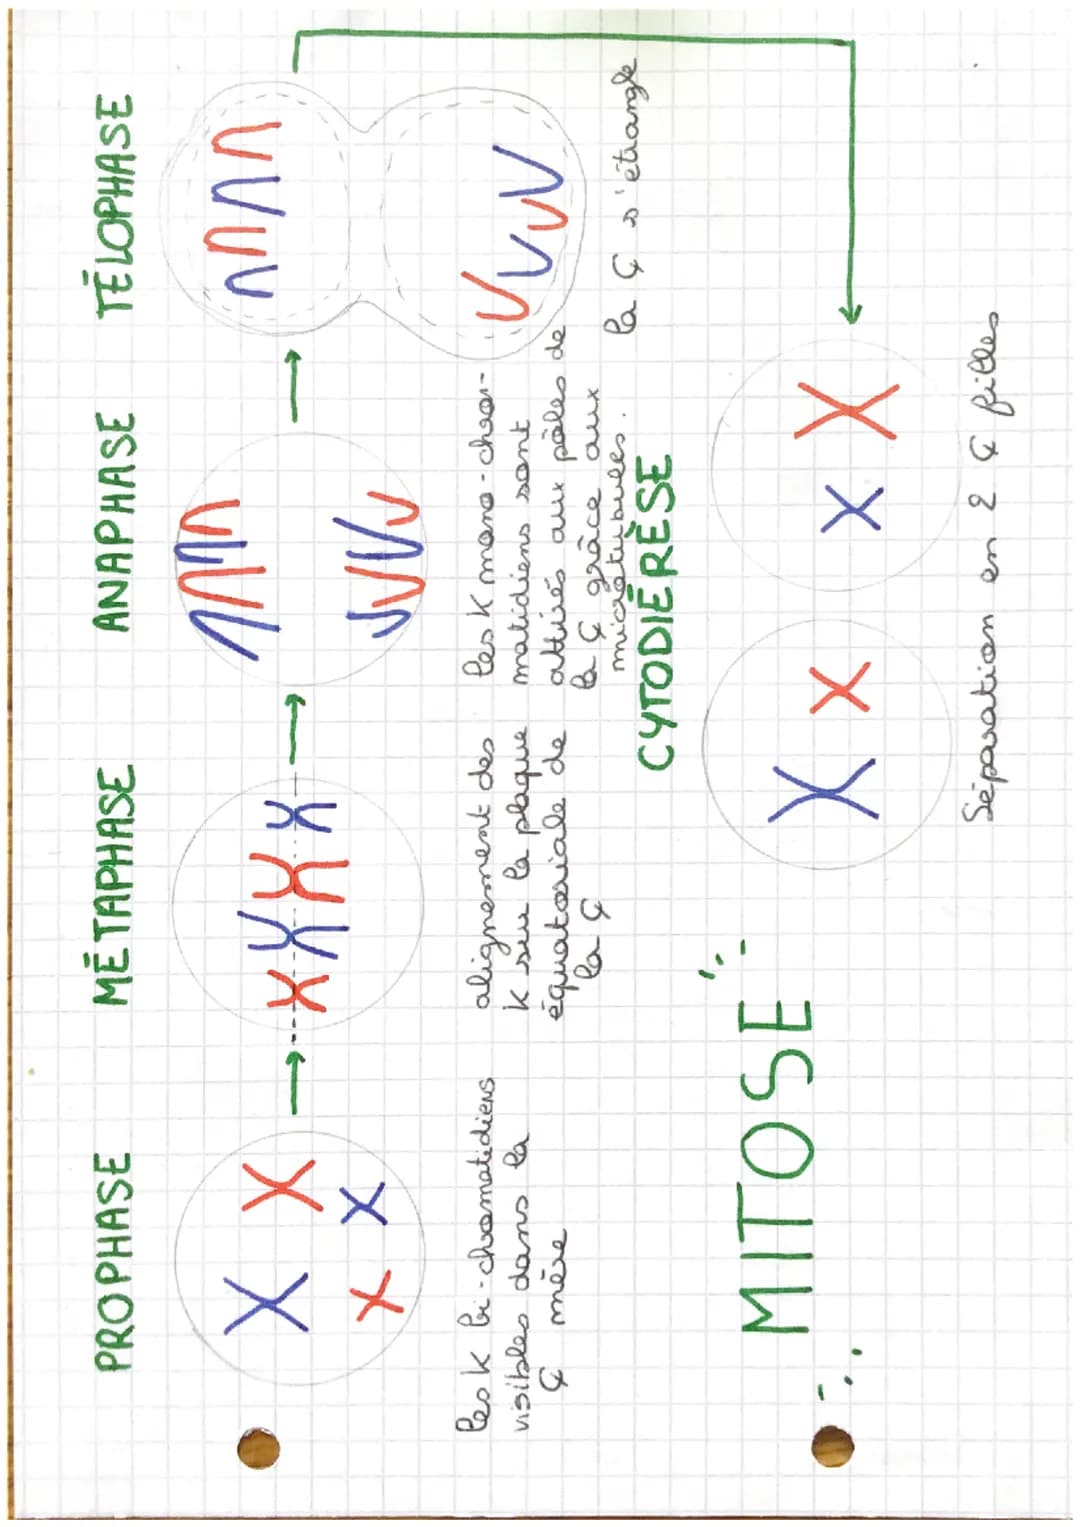 PROPHASE
les K bi-chromatidiens
visibles dans la
Ḉ mère
MÉTAPHASE
alignement des
K sur la plaque
équatoriale de
la Ḉ
ANAPHASE
les K mono-chro-
matidiens sont
attirés aux pôles de
la Ḉ grâce aux
microtubules.
TÉLOPHASE
la Ḉ s'étrangle
CYTODIÉRÈSE
Séparation en 2 Ḉ filles
MITOSE